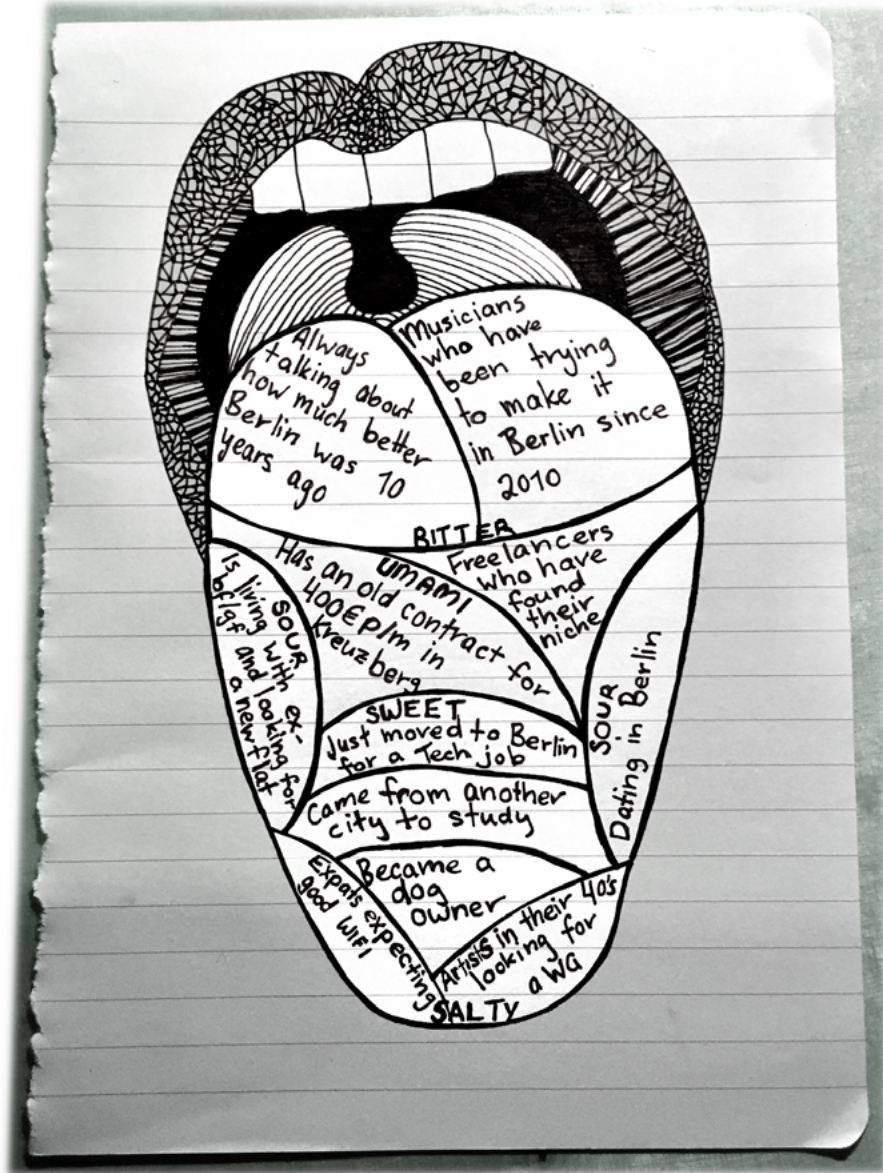 Always
talking about
how much better
Berlin was 10
years ago
Musicians
who have
been trying
to make it
in Berlin since
2010
BITTER
UMAMI
Has an old contract for
400€ p/m in
Kreuzberg
Freelancers
who have
found
their
niche
SOUR
Is living with ex-
bf/gf and looking for
a new flat
SOUR
Dating in Berlin
SWEET
Just moved to Berlin
for a Tech job
Came from another
city to study
Became a
dog
owner
Expats expecting
good WIFI
Artists in their 40's
looking for
a WG
SALTY